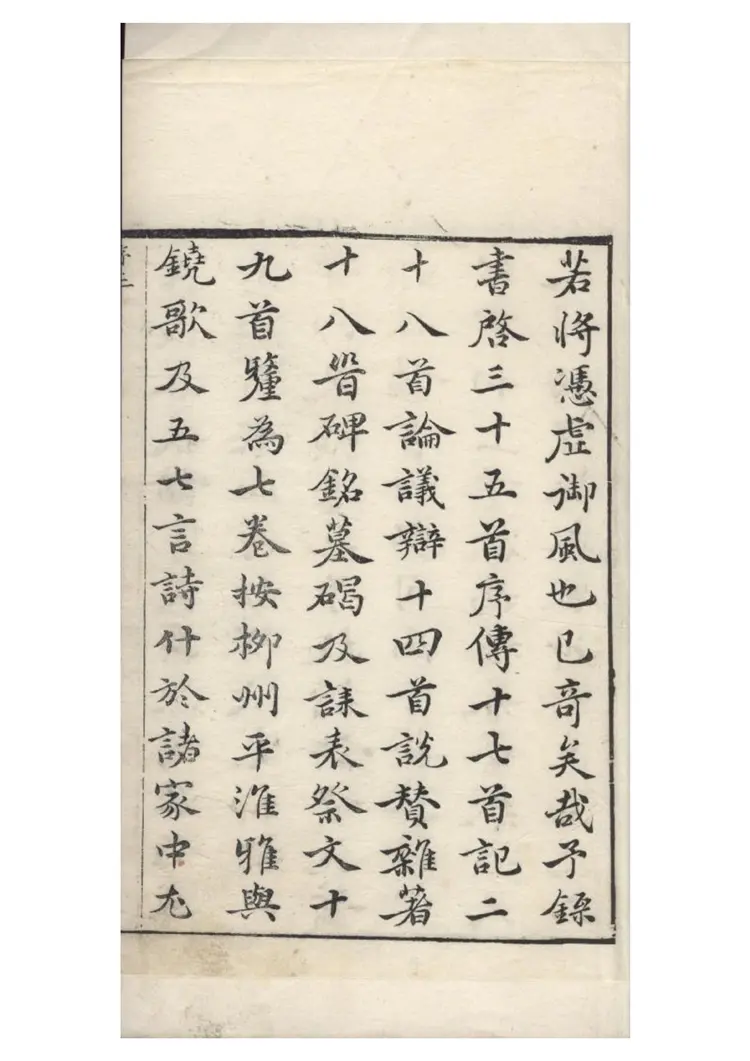 若將憑虛御風也已竒矣哉予錄
書啓三十五首序傳十七首記二
十八首論議辯十四首說賛雜著
十八首碑銘墓碣及誄表祭文十
九首釐為七卷按柳州平淮雅與
鐃歌及五七言詩什於諸家中尤